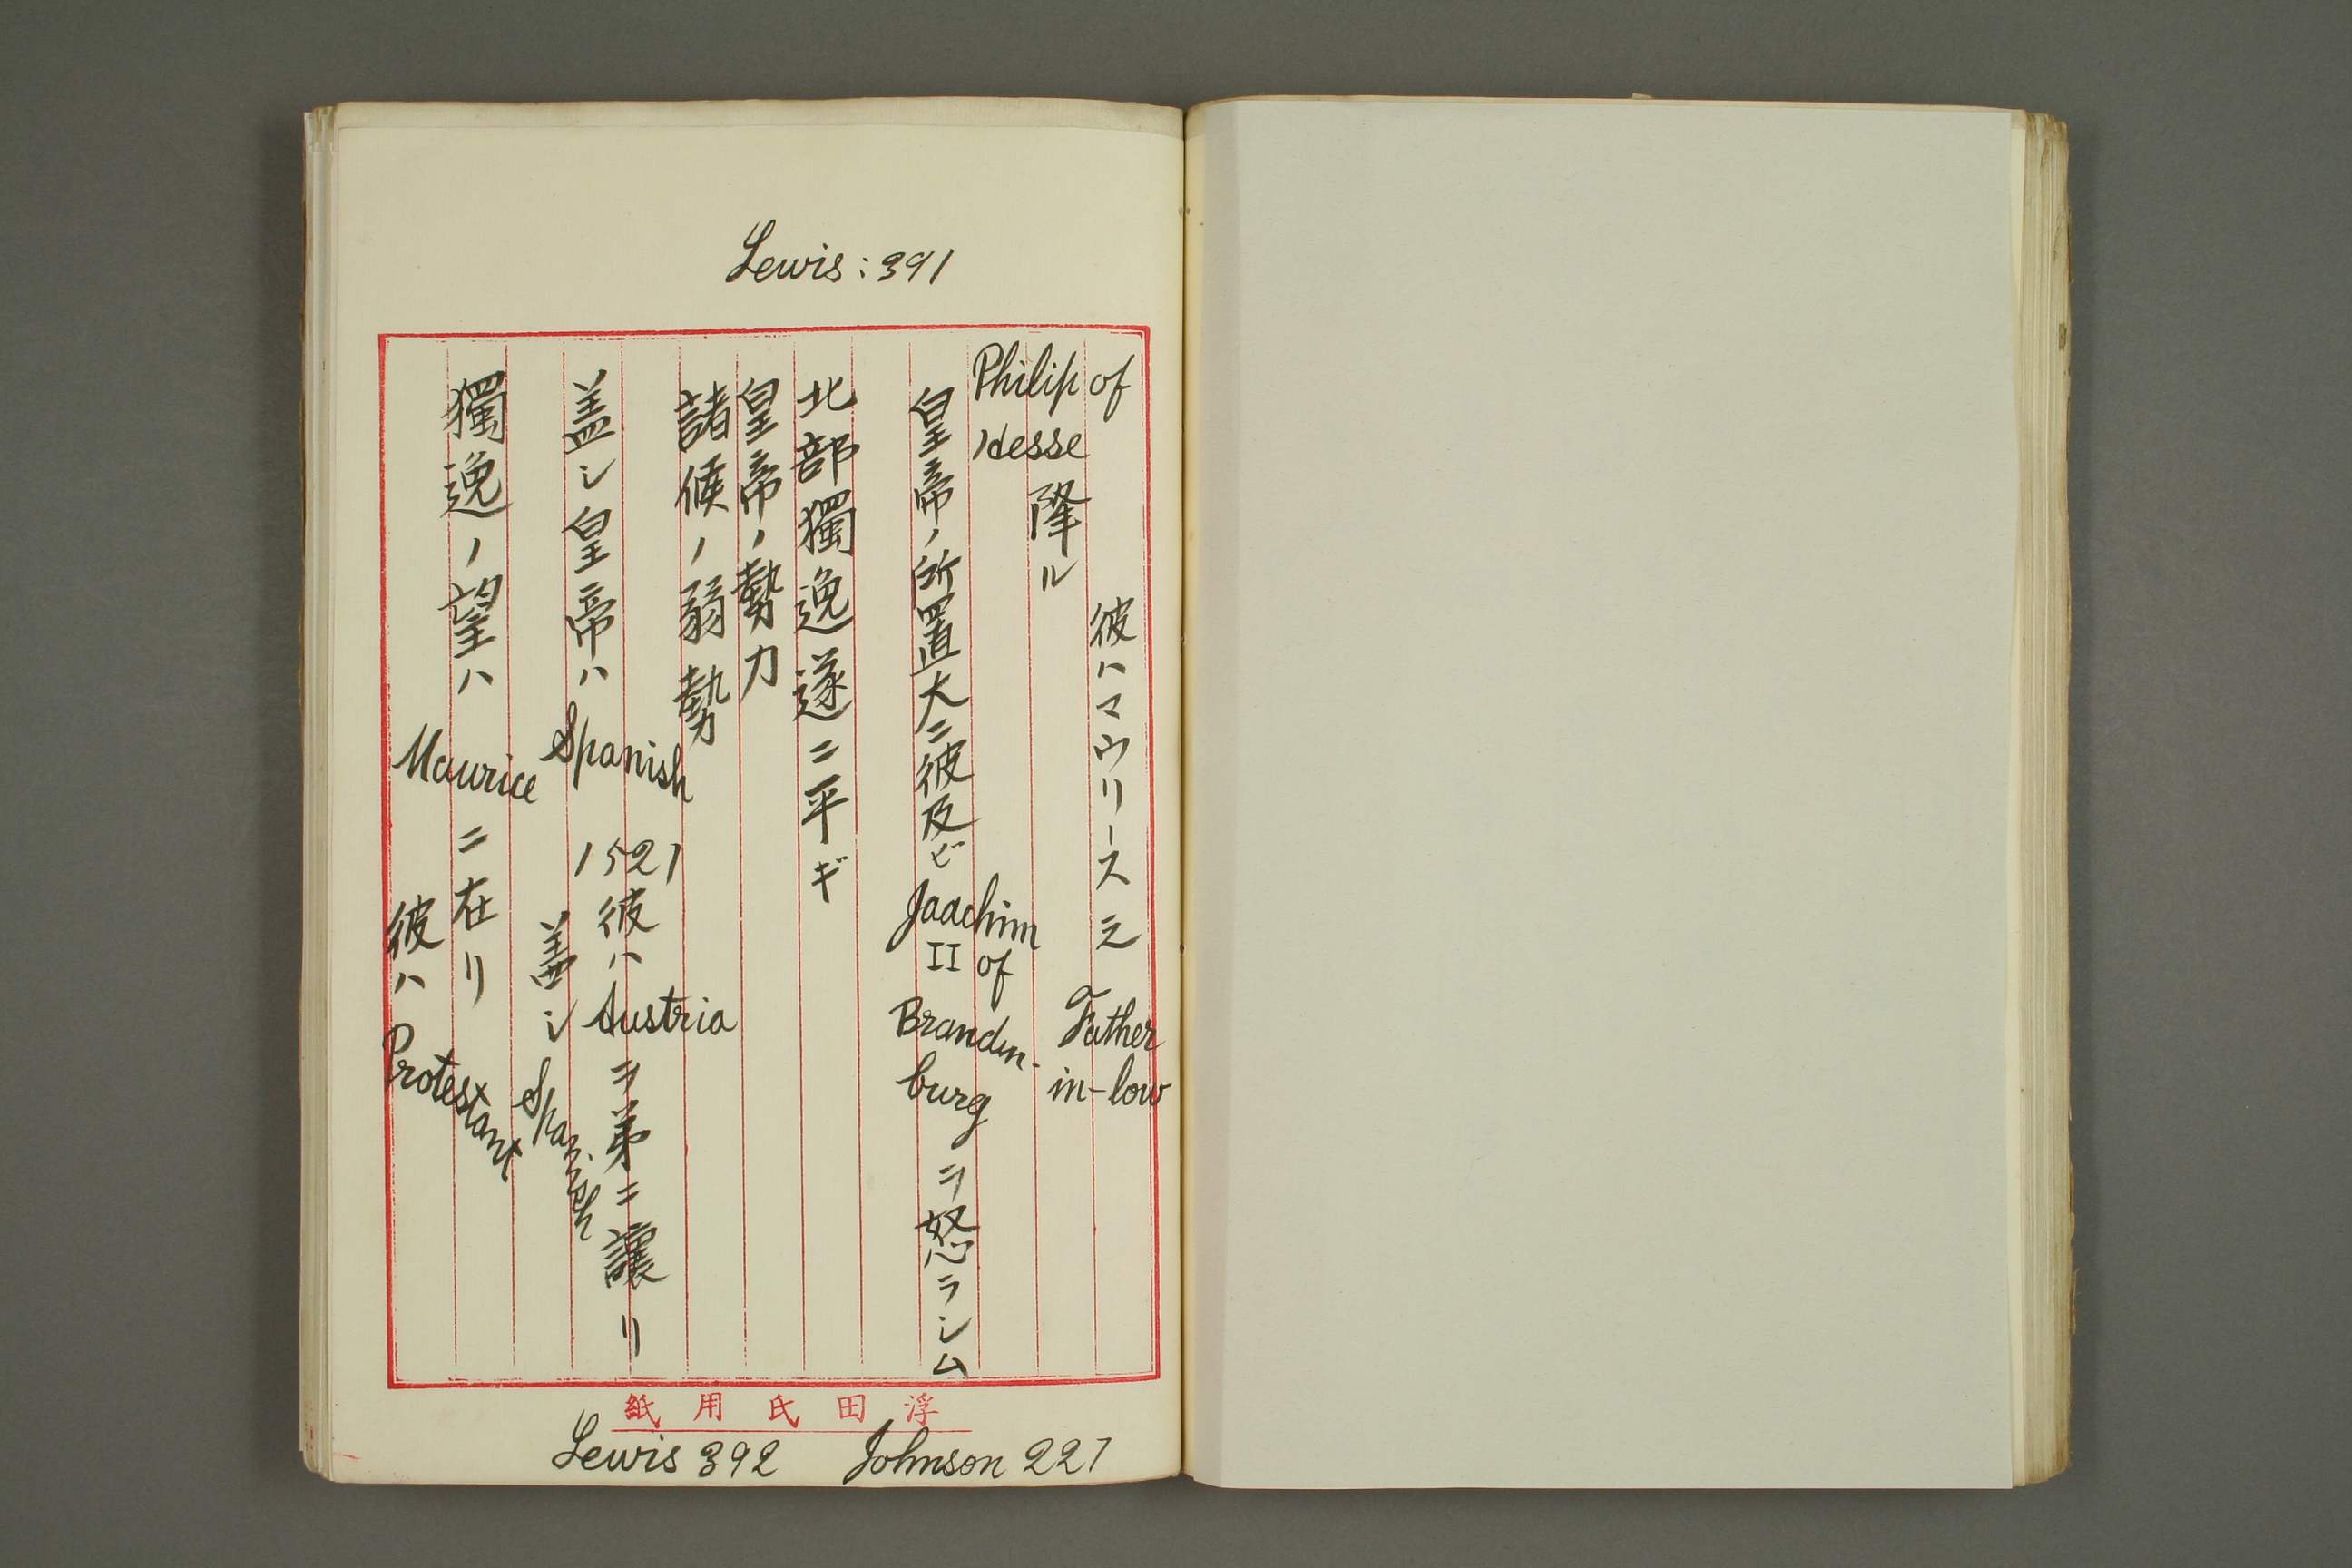 Lewis: 391
Philip of
Hesse
降ル
彼ハマウリース之
Father
in-low
皇帝ノ所置大ニ彼及ビ
Jaachim
II of
Branden-
burg
ヲ怒ラシム
北部獨逸遂ニ平ギ
皇帝ノ勢力
諸候ノ弱勢
盖シ皇帝ハ
Spanish
1521
彼ハ
Austria
ヲ弟ニ讓リ
盖シ
Spanish
獨逸ノ望ハ
Maurice
ニ在リ
彼ハ
Protestant
浮田氏用紙
Lewis 392 Johnson 227